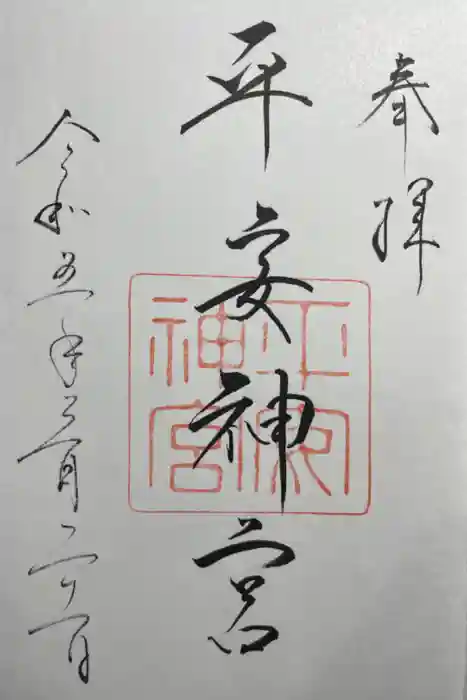 奉拝
平安神宮
平安
神宮
令和五年三月二十一日